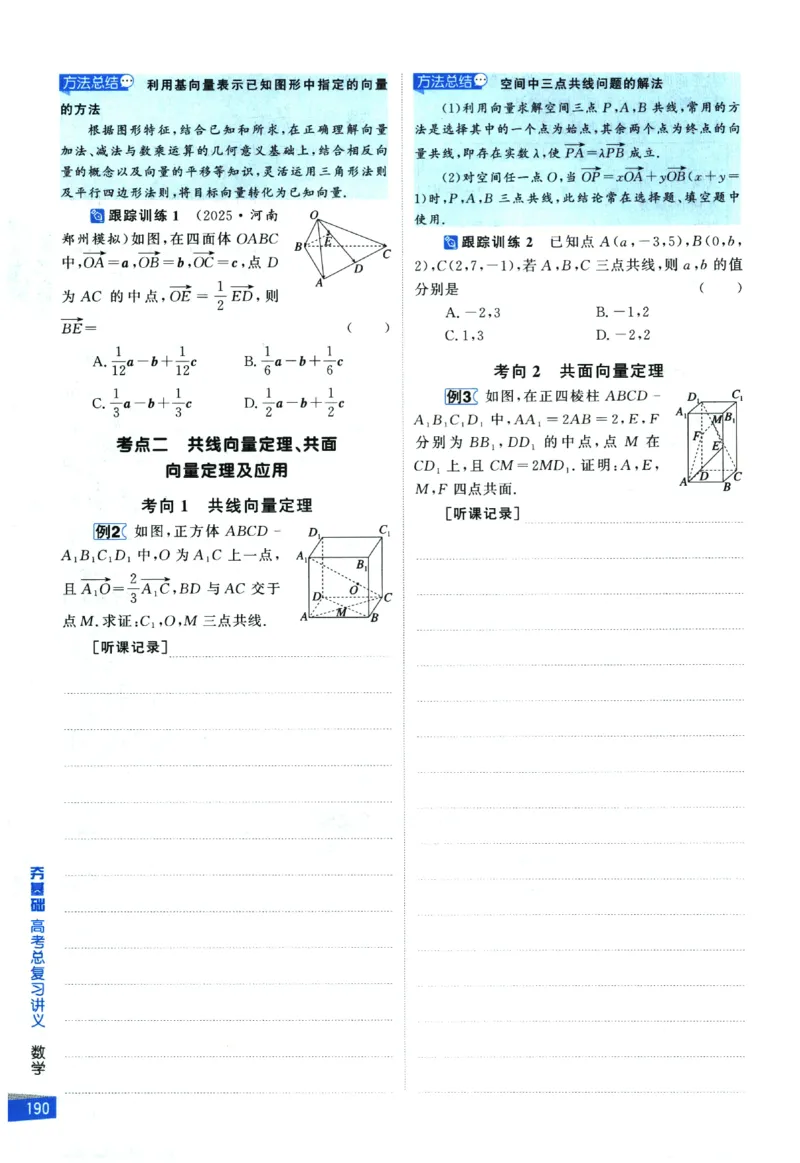 方法总结 利用基向量表示已知图形中指定的向量
的方法
根据图形特征,结合已知和所求,在正确理解向量
加法、减法与数乘运算的几何意义基础上,结合相反向
量的概念以及向量的平移等知识,灵活运用三角形法则
及平行四边形法则,将目标向量转化为已知向量.
跟踪训练 1 (2025·河南
郑州模拟)如图,在四面体 OABC
中,$\overrightarrow{OA}$=a,$\overrightarrow{OB}$=b,$\overrightarrow{OC}$=c,点 D
为 AC 的中点,$\overrightarrow{OE}$=$\frac{1}{2}\overrightarrow{ED}$,则
$\overrightarrow{BE}$= ( )
A.$\frac{1}{12}$a-b+$\frac{1}{12}$c B.$\frac{1}{6}$a-b+$\frac{1}{6}$c
C.$\frac{1}{3}$a-b+$\frac{1}{3}$c D.$\frac{1}{2}$a-b+$\frac{1}{2}$c
O
B E C
D
A
考点二 共线向量定理、共面
向量定理及应用
考向 1 共线向量定理
例2 如图,正方体 ABCD-
A₁B₁C₁D₁ 中,O 为 A₁C 上一点,
且 $\overrightarrow{A_1O}$=$\frac{2}{3}\overrightarrow{A_1C}$,BD 与 AC 交于
点M.求证:C₁,O,M 三点共线.
D₁ C₁
A₁ B₁
D O C
A M B
[听课记录]
方法总结 空间中三点共线问题的解法
(1)利用向量求解空间三点 P,A,B 共线,常用的方
法是选择其中的一个点为始点,其余两个点为终点的向
量共线,即存在实数λ,使 $\overrightarrow{PA}$=λ$\overrightarrow{PB}$ 成立.
(2)对空间任一点 O,当 $\overrightarrow{OP}$=x$\overrightarrow{OA}$+y$\overrightarrow{OB}$(x+y=
1)时,P,A,B 三点共线,此结论常在选择题、填空题中
使用.
跟踪训练 2 已知点 A(a,-3,5),B(0,b,
2),C(2,7,-1),若 A,B,C 三点共线,则 a,b 的值
分别是 ( )
A.-2,3 B.-1,2
C.1,3 D.-2,2
考向 2 共面向量定理
例3 如图,在正四棱柱 ABCD-
A₁B₁C₁D₁ 中,AA₁=2AB=2,E,F
分别为 BB₁,DD₁ 的中点,点 M 在
CD₁ 上,且 CM=2MD₁.证明:A,E,
M,F 四点共面.
D₁ C₁
A₁ M B₁
F E
D C
A B
[听课记录]
夯基础 高考总复习讲义 数学
190